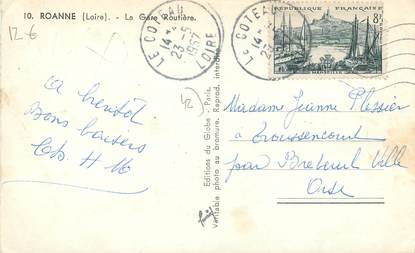 10. ROANNE (Loire). - La Gare Routière.
12 €
LE COTEAU
14 H
23-5
LOIRE
LE COTEAU
14 H
23-5
REPUBLIQUE FRANÇAISE
8F
MARSEILLE
42)
à bientôt
Bons baisers
Editions du Globe - Paris.
Véritable photo au bromure. Reprod. interdite
Madame Jeanne Plessier
à Troussencourt
par Breteuil Ville
Oise